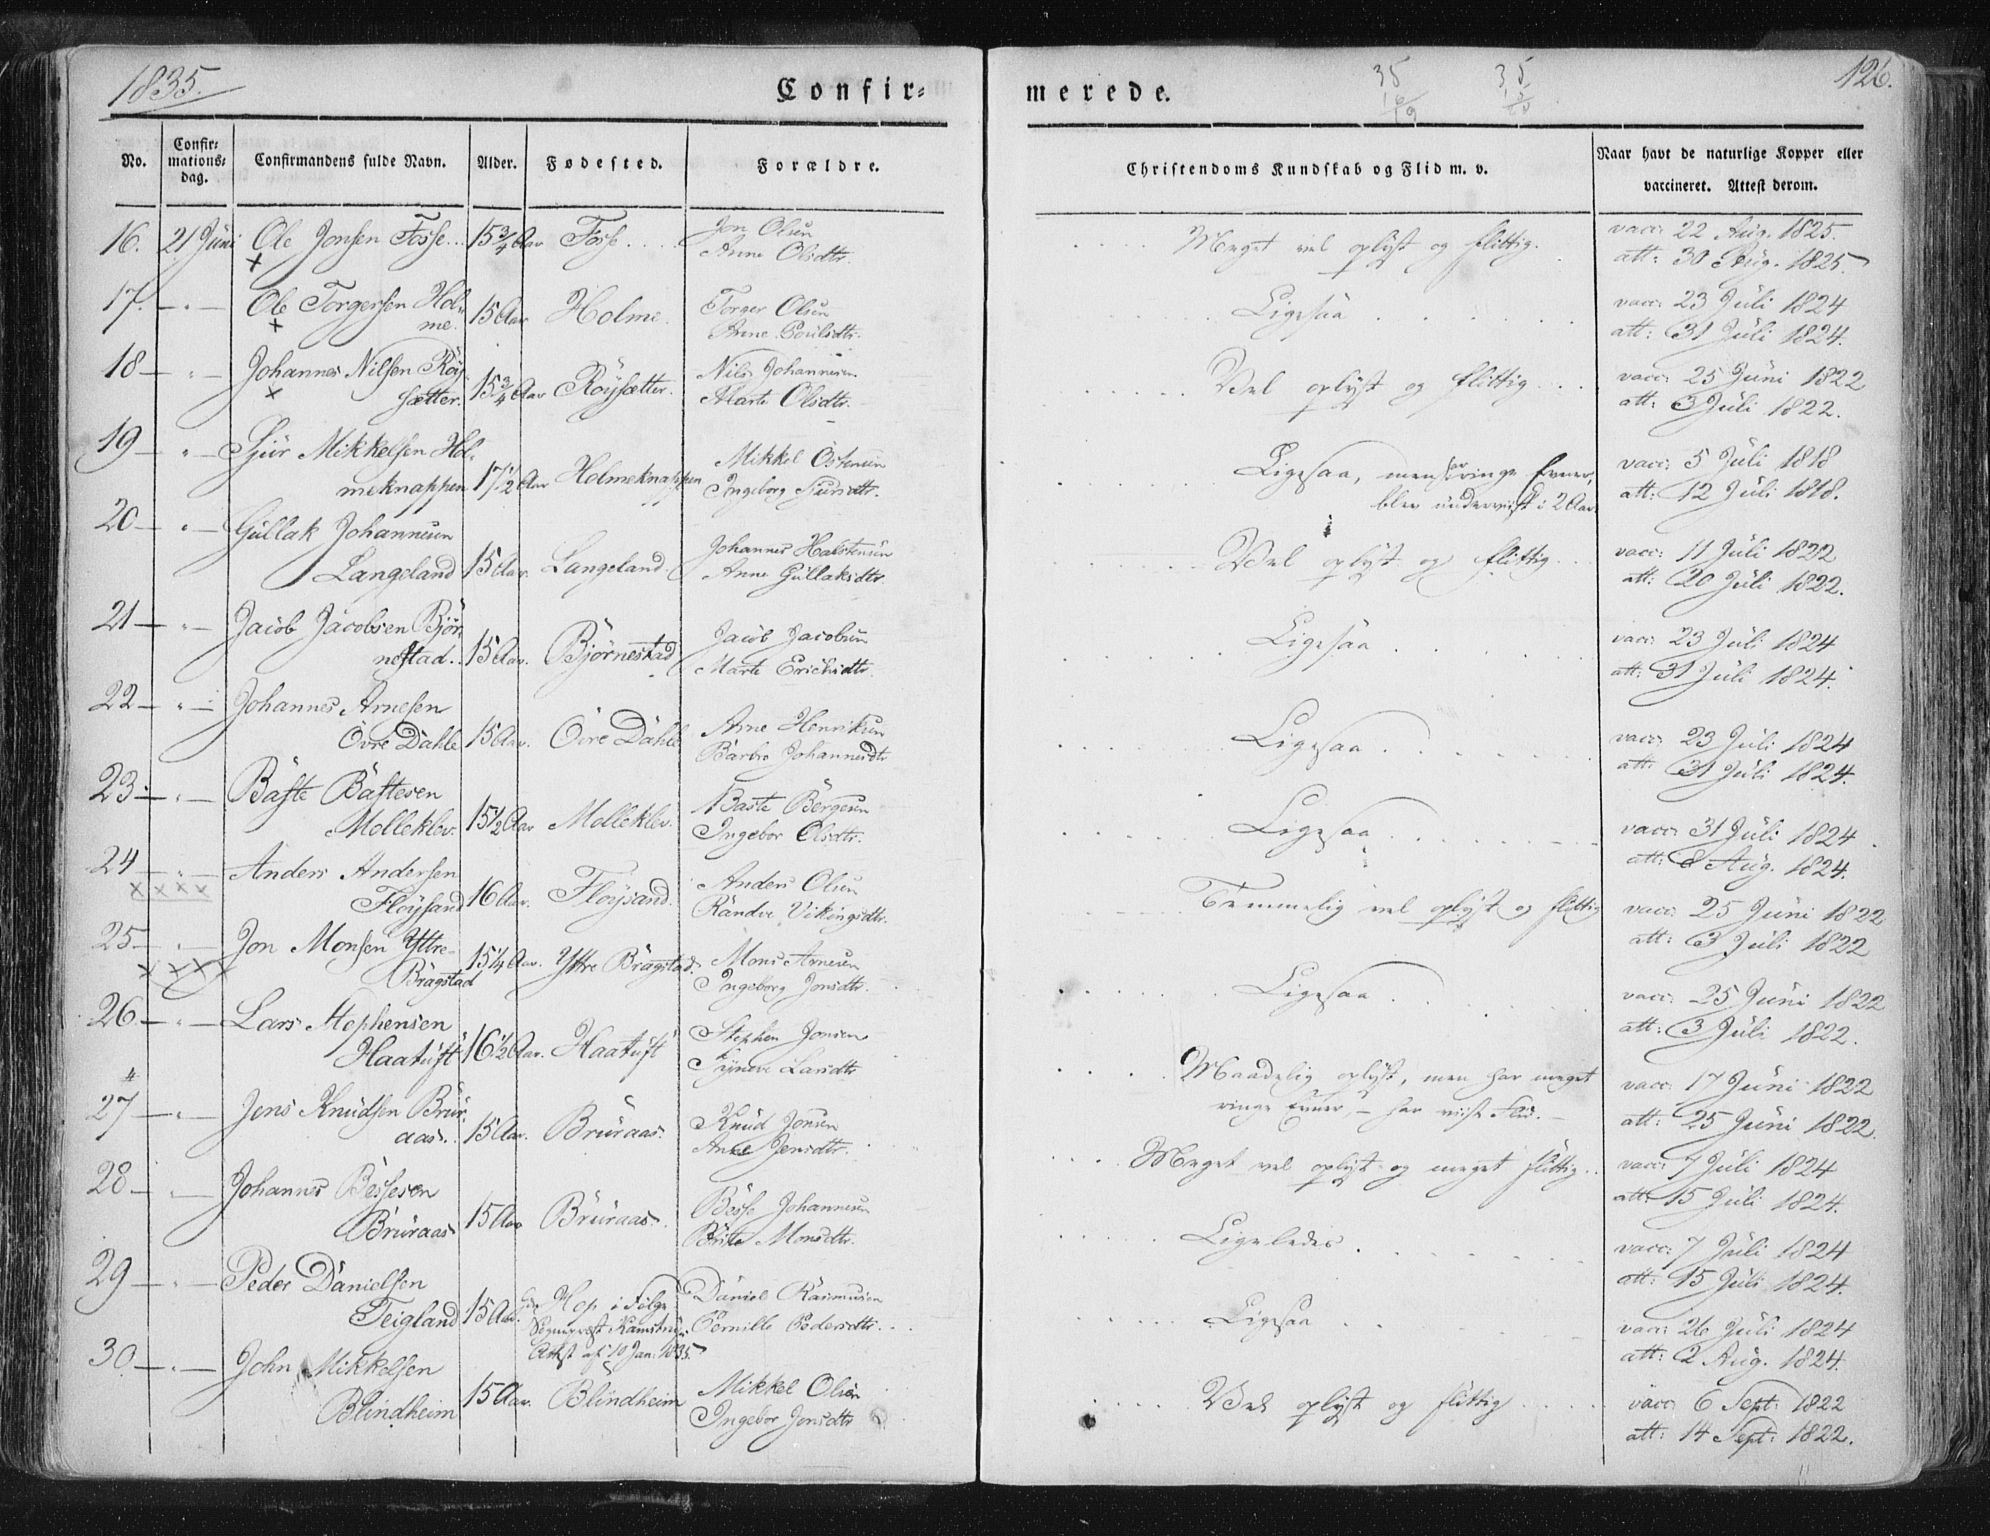 1835.
Confir=
merede.
35
35
126.
No.
Confir=
mations=
dag.
Confirmandens fulde Navn.
Alder.
Fødested.
Forældre.
Christendoms Kundskab og Flid m. v.
Naar havt de naturlige Kopper eller
vaccineret. Attest derom.
16. 21 Juni Ole Jonsen Fosse... 15 3/4 Aar Fosse.... Jon Olsen
Anne Olsdtr.
Meget vel oplyst og flittig.
vacc: 22 Aug. 1825.
att: 30 Aug. 1825.
17. — „ — Ole Torgersen Hol=
me. 15 Aar Holme. Torger Olsen
Anne Poulsdtr.
Ligesaa
vacc: 23 Juli 1824
att: 31 Juli 1824.
18 — „ — Johannes Nilsen Röy=
sætter. 15 3/4 Aar Röysætter. Nils Johannesen
Marte Olsdtr.
Vel oplyst og flittig
vacc: 25 Juni 1822
att: 3 Juli 1822.
19 — „ — Sjur Mikkelsen Hol=
meknappen 17 1/2 Aar Holmeknappen Mikkel Östensen
Ingeborg Sursdtr.
Ligesaa, men har ringe Evner,
blev underviist i 2 Aar.
vacc: 5 Juli 1818
att: 12 Juli 1818.
20 — „ — Gullak Johannesen
Langeland 15 Aar. Langeland. Johannes Halstensen
Anne Gullaksdtr.
Vel oplyst og flittig
vacc: 11 Juli 1822
att: 20 Juli 1822.
21 — „ — Jacob Jacobsen Björ=
nestad.. 15 Aar. Björnestad Jacob Jacobsen
Marte Erichsdtr.
Ligesaa
vacc: 23 Juli 1824
att: 31 Juli 1824.
22 — „ — Johannes Arnesen
Övre Dahle 15 Aar. Övre Dahle Arne Henriksen
Barbro Johannesdtr
Ligesaa
vacc: 23 Juli 1824
att: 31 Juli 1824.
23 — „ — Baste Bastesen
Molleklev. 15 1/2 Aar Molleklev. Baste Börgesen
Ingebor Olsdtr.
Ligesaa
vacc: 31 Juli 1824
att: 8 Aug. 1824.
24 — „ — Anders Andersen
Flöysand 16 Aar. Flöysand. Anders Olsen
Randve Vikingsdtr.
Temmelig vel oplyst og flittig
vacc: 25 Juni 1822
att: 3 Juli 1822
25 — „ — Jon Monsen Yttre-
Bragstad 15 1/4 Aar. Yttre Bragstad. Mons Arnesen
Ingeborg Jonsdtr.
Ligesaa
vacc: 25 Juni 1822
att: 3 Juli 1822.
26 — „ — Lars Stephensen
Haatuft 16 1/2 Aar. Haatuft Stephen Jonsen
Synneve Larsdtr
Maadelig oplyst, men har meget
ringe Evner, — har viist Flid. —
vacc: 17 Juni 1822
att: 25 Juni 1822.
27 — „ — Jens Knudsen Brur=
aas. 15 Aar. Bruraas. Knud Jonsen
Anne Jensdtr.
Meget vel oplyst og meget flittig..
vacc: 7 Juli 1824
att: 15 Juli 1824.
28 — „ — Johannes Bessesen
Bruraas 15 Aar Bruraas. Besse Johannesen
Brite Monsdtr.
Ligeledes
vacc: 7 Juli 1824
att: 15 Juli 1824.
29 — „ — Peder Danielsen
Teigland 15 Aar. Hop i Følge
Sognepræst
Attest af 10 Jan: 1835 Daniel Rasmusen
Pernille Pedersdtr.
Ligesaa
vacc: 26 Juli 1824
att: 2 Aug. 1824.
30 — „ — John Mikkelsen
Blindheim 15 Aar. Blindheim Mikkel Olsen
Ingebor Jonsdtr
Vel oplyst og flittig
vacc: 6 Sept: 1822
att: 14 Sept: 1822.